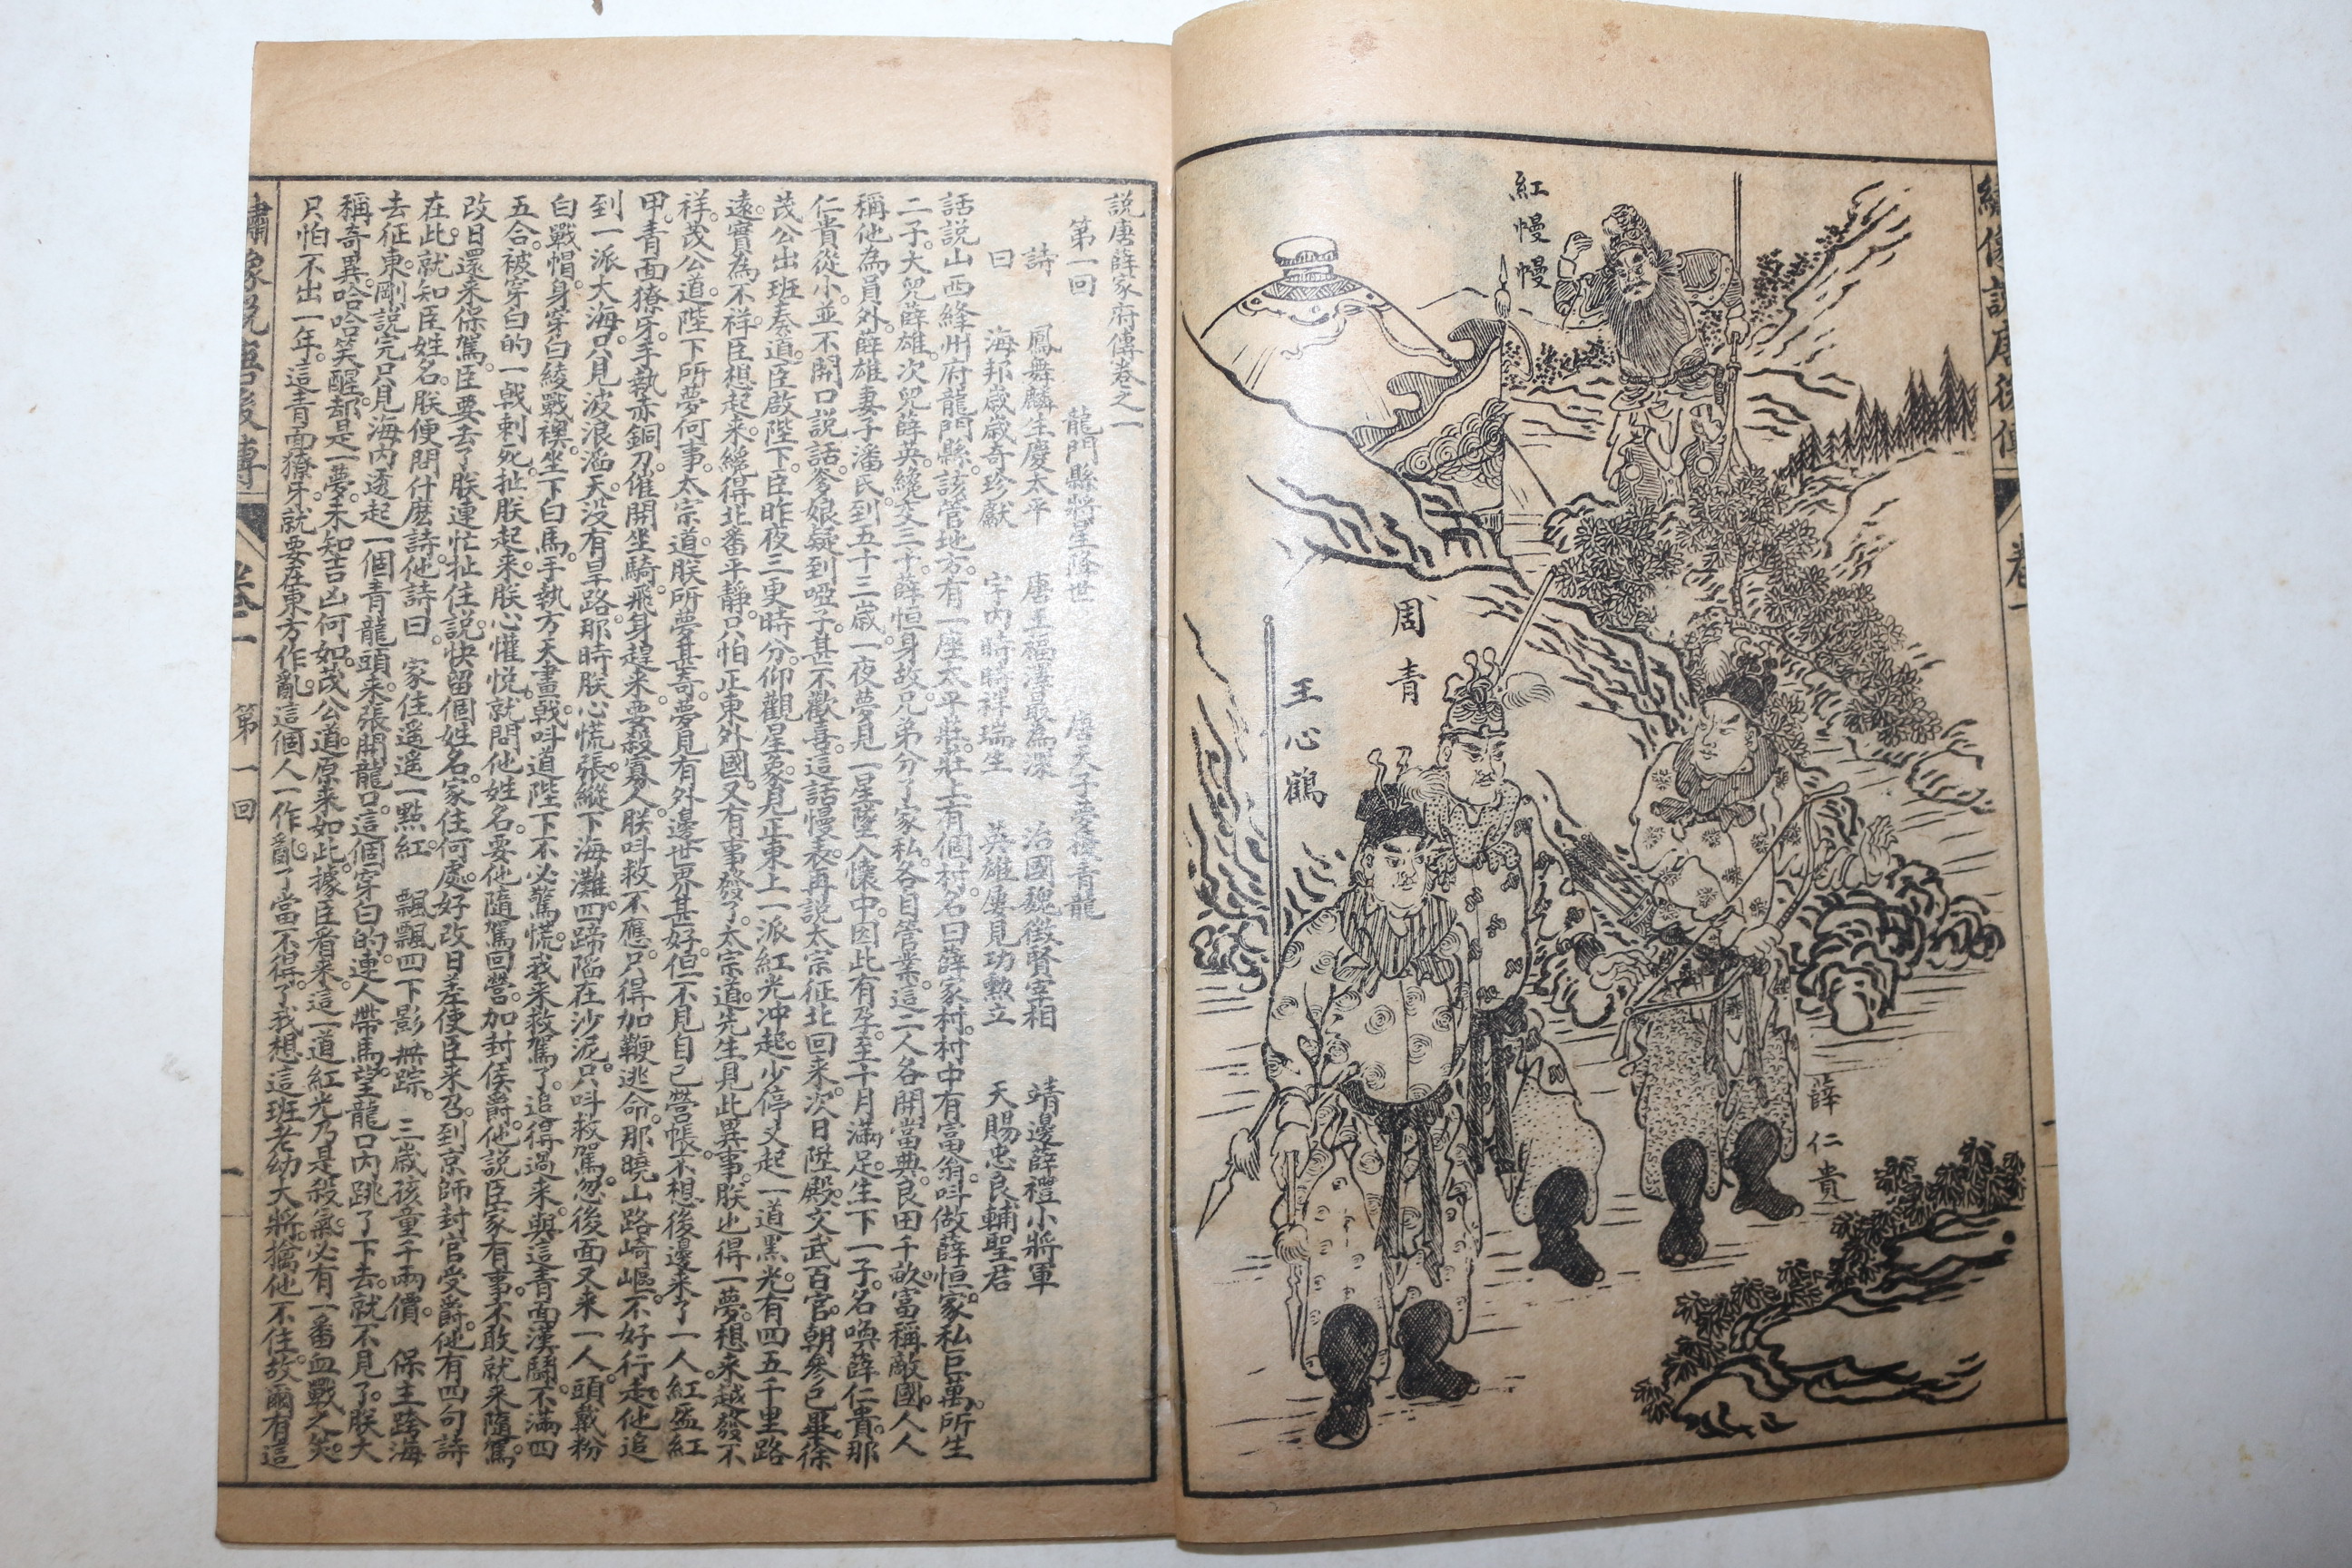 繡像說唐後傳
卷一
紅幔幔
周青
王心鶴
薛仁貴
説唐薛家府傳卷之一
第一回 龍門縣將星降世 唐天子夢擾青龍
詩 鳳舞麟生慶太平 唐王福澤最為深 治國魏徵賢宰相 靖邊薛禮小將軍
曰 海邦歲歲奇珍獻 宇內時時祥瑞生 英雄屢見功勲立 天賜忠良輔聖君
話説山西絳州府龍門縣。該管地方。有一座太平莊。莊上有個村。名曰薛家村。村中有富翁。呌做薛恒。家私巨萬。所生
二子。大兒薛雄。次兒薛英。纔交三十。薛恒身故。兄弟分了家私。各自管業。這二人各開當典。良田千畝。富稱敵國。人人
稱他為員外。薛雄妻子潘氏。到五十三歲。一夜夢見一星墜入懷中。因此有孕。至十月滿足。生下一子。名喚薛仁貴。那
仁貴從小。並不開口説話。爹娘疑到啞子。甚不歡喜。這話慢表。再説太宗征北回来。次日陞殿。文武百官。朝參已畢。徐
茂公出班奏道。臣啟陛下。臣昨夜三更時分。仰觀星象。見正東上一派紅光冲起。少停又起一道黑光。有四五千里路
遠。實為不祥。臣想起来。纔得北番平靜。只怕正東外國。又有事發了。太宗道。先生見此異事。朕也得一夢。想来越發不
祥。茂公道。陛下所夢何事。太宗道。朕所夢甚奇。夢見有外邊世界甚好。但不見自己營帳。不想後邊来了一人。紅盔紅
甲。青面獠牙。手執赤銅刀。催開坐騎。飛身趕来。要殺寡人。朕呌救不應。只得加鞭逃命。那曉山路崎嶇。不好行走。他追
到一派大海。只見波浪滔天。没有旱路。那時朕心慌張。縱下海灘。四蹄陷在沙泥。只呌救駕。忽後面又来一人。頭戴粉
白戰帽。身穿白綾戰襖。坐下白馬。手執方天畫戟。呌道陛下不必驚慌。我来救駕了。追得過来。與這青面漢鬪。不滿四
五合。被穿白的一戟刺死。扯朕起来。朕心懽悦。就問他姓名。要他隨駕回營。加封侯爵。他説臣家有事。不敢就来隨駕。
改日還来保駕。臣要去了。朕連忙扯住。説快留個姓名。家住何處。好改日差使臣来召。到京師封官受爵。他有四句詩
在此。就知臣姓名。朕便問什麽詩。他詩曰 家住遥遥一點紅 飄飄四下影無踪。 三歲孩童千兩價。 保主跨海
去征東。剛説完。只見海內透起一個青龍頭来。張開龍口。這個穿白的。連人帶馬。望龍口內跳了下去。就不見了。朕大
稱奇異。哈哈笑醒。却是一夢。未知吉凶何如。茂公道。原来如此。據臣看来。這一道紅光乃是殺氣。必有一番血戰之災。
只怕不出一年。這青面獠牙。就要在東方作亂。這個人一作亂。了當不得。了我想這班老幼大將。擒他不住。故爾有這
繡像說唐後傳
卷一 第一回
一